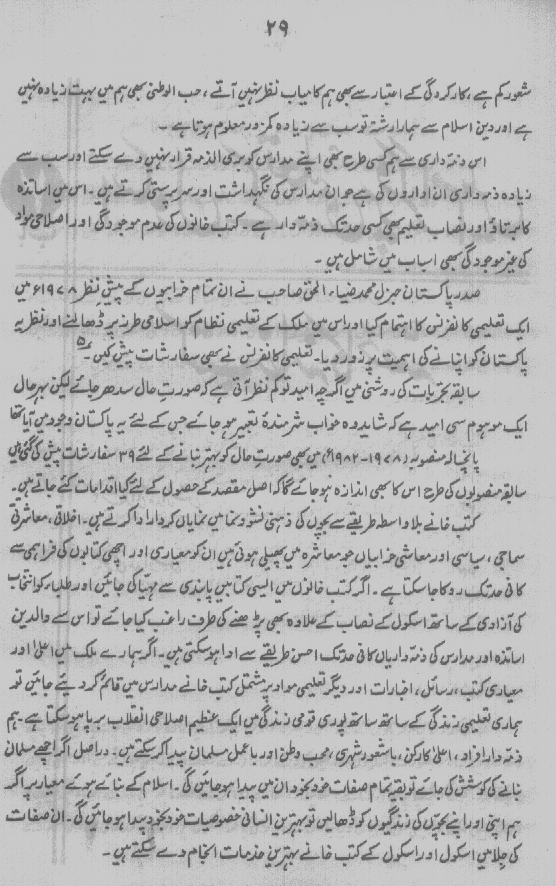 ۲۹
شعور کم ہے، کارکردگی کے اعتبار سے بھی ہم کامیاب نظر نہیں آتے، حب الوطنی بھی ہم میں بہت زیادہ نہیں
ہے اور دین اسلام سے ہمارا رشتہ تو سب سے زیادہ کمزور معلوم ہوتا ہے۔
اس ذمہ داری سے ہم کسی طرح بھی اپنے مدارس کو بری الذمہ قرار نہیں دے سکتے اور سب سے
زیادہ ذمہ داری ان اداروں کی ہے جو ان مدارس کی نگہداشت اور سرپرستی کرتے ہیں۔ اس میں اساتذہ
کا برتاؤ اور نصاب تعلیم بھی کسی حد تک ذمہ دار ہے۔ کتب خانوں کی عدم موجودگی اور اصلاحی مواد
کی غیر موجودگی بھی اسباب میں شامل ہیں۔
صدر پاکستان جنرل محمد ضیاء الحق صاحب نے ان تمام خرابیوں کے پیش نظر ۱۹۷۸ء میں
ایک تعلیمی کانفرنس کا اہتمام کیا اور اس میں ملک کے تعلیمی نظام کو اسلامی طرز پر ڈھالنے اور نظریہ
پاکستان کو اپنانے کی اہمیت پر زور دیا۔ تعلیمی کانفرنس نے بھی سفارشات پیش کیں۔
سابقہ تجربات کی روشنی میں اگرچہ امید تو کم نظر آتی ہے کہ صورتِ حال سدھر جائے لیکن بہر حال
ایک موہوم سی امید ہے کہ شاید وہ خواب شرمندۂ تعبیر ہو جائے جس کے لئے یہ پاکستان وجود میں آیا تھا
پانچسالہ منصوبہ (۱۹۷۸-۱۹۸۲ء) میں بھی صورتِ حال کو بہتر بنانے کے لئے ۳۹ سفارشات پیش کی گئی ہیں
سابقہ منصوبوں کی طرح اس کا بھی اندازہ ہو جائے گا کہ اصل مقصد کے حصول کے لئے کیا اقدامات کئے جاتے ہیں۔
کتب خانے بلا واسطہ طریقے سے بچوں کی ذہنی نشوونما میں نمایاں کردار ادا کرتے ہیں۔ اخلاقی، معاشرتی
سماجی، سیاسی اور معاشی خرابیاں جو معاشرہ میں پھیلی ہوئی ہیں ان کو معیاری اور اچھی کتابوں کی فراہمی سے
کافی حد تک روکا جا سکتا ہے۔ اگر کتب خانوں میں ایسی کتابیں پابندی سے مہیا کی جائیں اور طلباء کو انتخاب
کی آزادی کے ساتھ اسکول کے نصاب کے علاوہ بھی پڑھنے کی طرف راغب کیا جائے تو اس سے والدین
اساتذہ اور مدارس کی ذمہ داریاں کافی حد تک احسن طریقے سے ادا ہو سکتی ہیں۔ اگر ہمارے ملک میں اعلیٰ اور
معیاری کتب، رسائل، اخبارات اور دیگر تعلیمی مواد پر مشتمل کتب خانے مدارس میں قائم کر دیئے جائیں تو
ہماری تعلیمی زندگی کے ساتھ ساتھ پوری قومی زندگی میں ایک عظیم اصلاحی انقلاب برپا ہو سکتا ہے۔ ہم
ذمہ دار افراد، اعلیٰ کارکن، باشعور شہری، محب وطن اور باعمل مسلمان پیدا کر سکتے ہیں۔ دراصل اگر اچھے مسلمان
بنانے کی کوشش کی جائے تو بقیہ تمام صفات خود بخود ان میں پیدا ہو جائیں گی۔ اسلام کے بنائے ہوئے معیار پر اگر
ہم اپنی اور اپنے بچوں کی زندگیوں کو ڈھالیں تو بہترین انسانی خصوصیات خود بخود پیدا ہو جائیں گی۔ ان صفات
کی جلا میں اسکول اور اسکول کے کتب خانے بہترین خدمات انجام دے سکتے ہیں۔